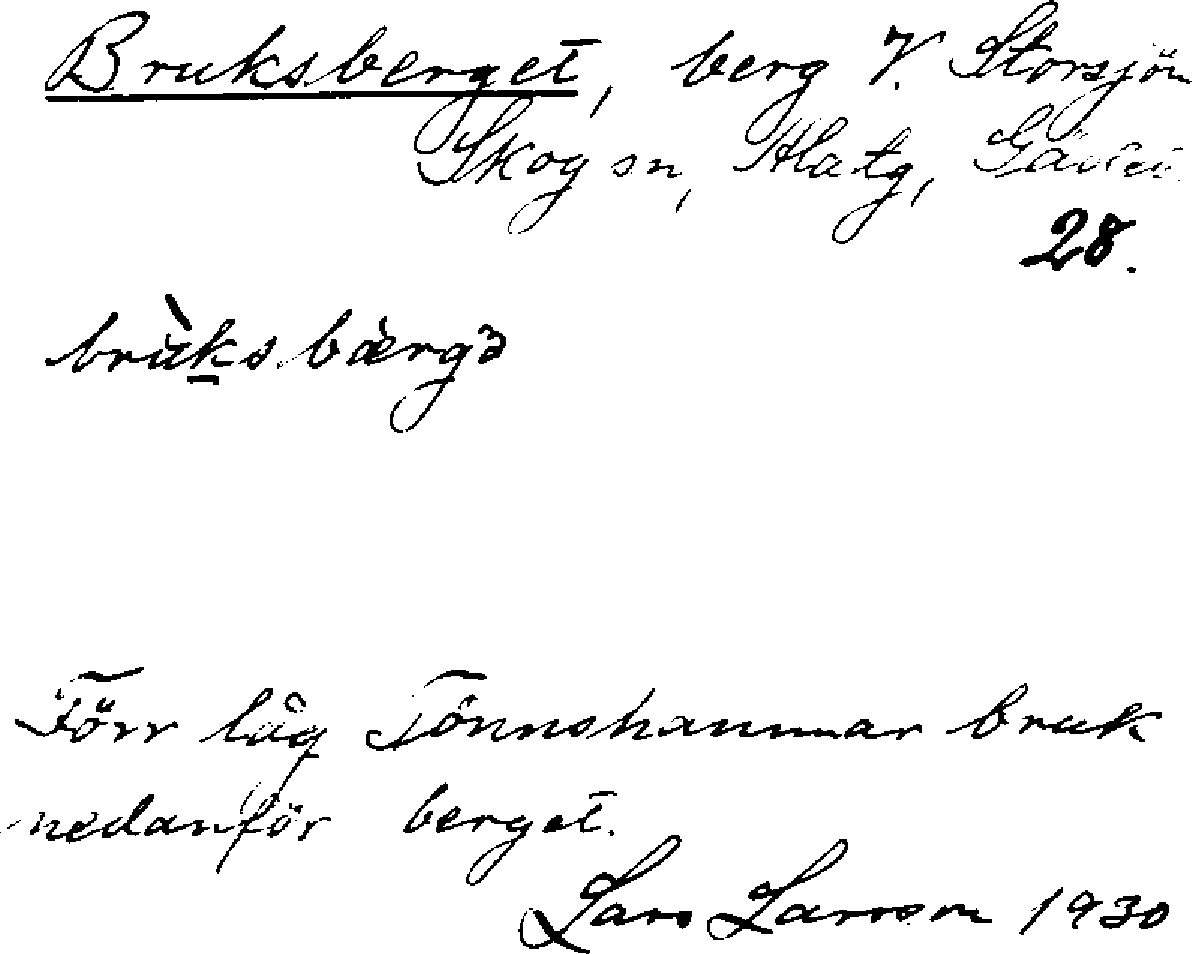 Bruksberget, berg V. Storsjön
Skog sn, Hlstg, Gävleb.
28.
brùksbærgə
Förr låg Tönnshammar bruk
nedanför berget.
Lars Larsson 1930